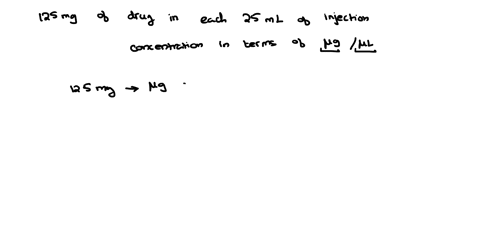 125 mg of drug in each 25 mL of injection
concentration in terms of μg /μL
125 mg → μg